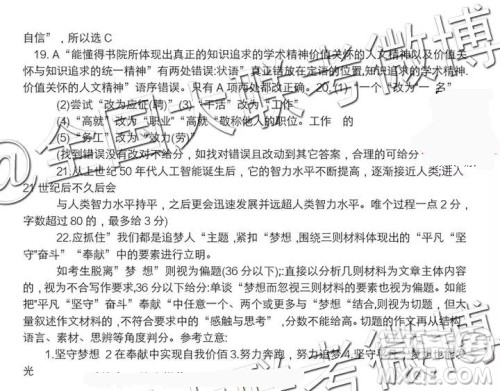 自信”，所以选 C
19. A“能懂得书院所体现出真正的知识追求的学术精神价值关怀的人文精神以及价值关
怀与知识追求的统一精神”有两处错误:状语”真正错放在定语的位置,知识追求的学术精神.
价值关怀的人文精神”语序错误。只有 A 项两处都改正确。20. (1)“一个”改为“一 名”
(2)尝试“改为应征(聘)”(3)。“干活”改为“工作”
(4)。“高就”改为“职业”“高就“敬称他人的职位。工作 的
(5)。“务工”改为“效力(劳)”
(找到错误没有改对不给分，如找对错误且改动到其它答案，合理的可给分
21.从上世纪 50 年代人工智能诞生后，它的智力水平不断提高，逐渐接近人类;进入
21 世纪后不久后会
与人类智力水平持平，之后更会迅速发展并远超人类智力水平。唯个过程一点 2 分，
字数超过 80 的，最多给 3 分)
22.应抓住”我们都是追梦人“主题 ,紧扣“梦想 ,围绕三则材料体现出的“平凡“坚
守”奋斗”“奉献”中的要素进行立明.
如考生脱离”梦 想 ”则视为偏题(36 分以下);;直接以分析几则材料为文章主体内容
的，视为不合写作要求,36 分以下给分:单谈“梦想而忽视三则材料的要素也视为偏题。如能
把“平凡“坚守”奋斗”“奉献“中任意一个、两个或更多与“梦想“结合,则视为切题，但大
量叙述作文材料的 ,不符合要求中的“感触与思考” ,分数不能给高。切题的作文再从结构
语言、素材、思辨等角度判分。参考立意:
1.坚守梦想 2 在奉献中实现自我价值 3.努力奔跑，努力追梦 4.坚守
光
@全国大联考微博